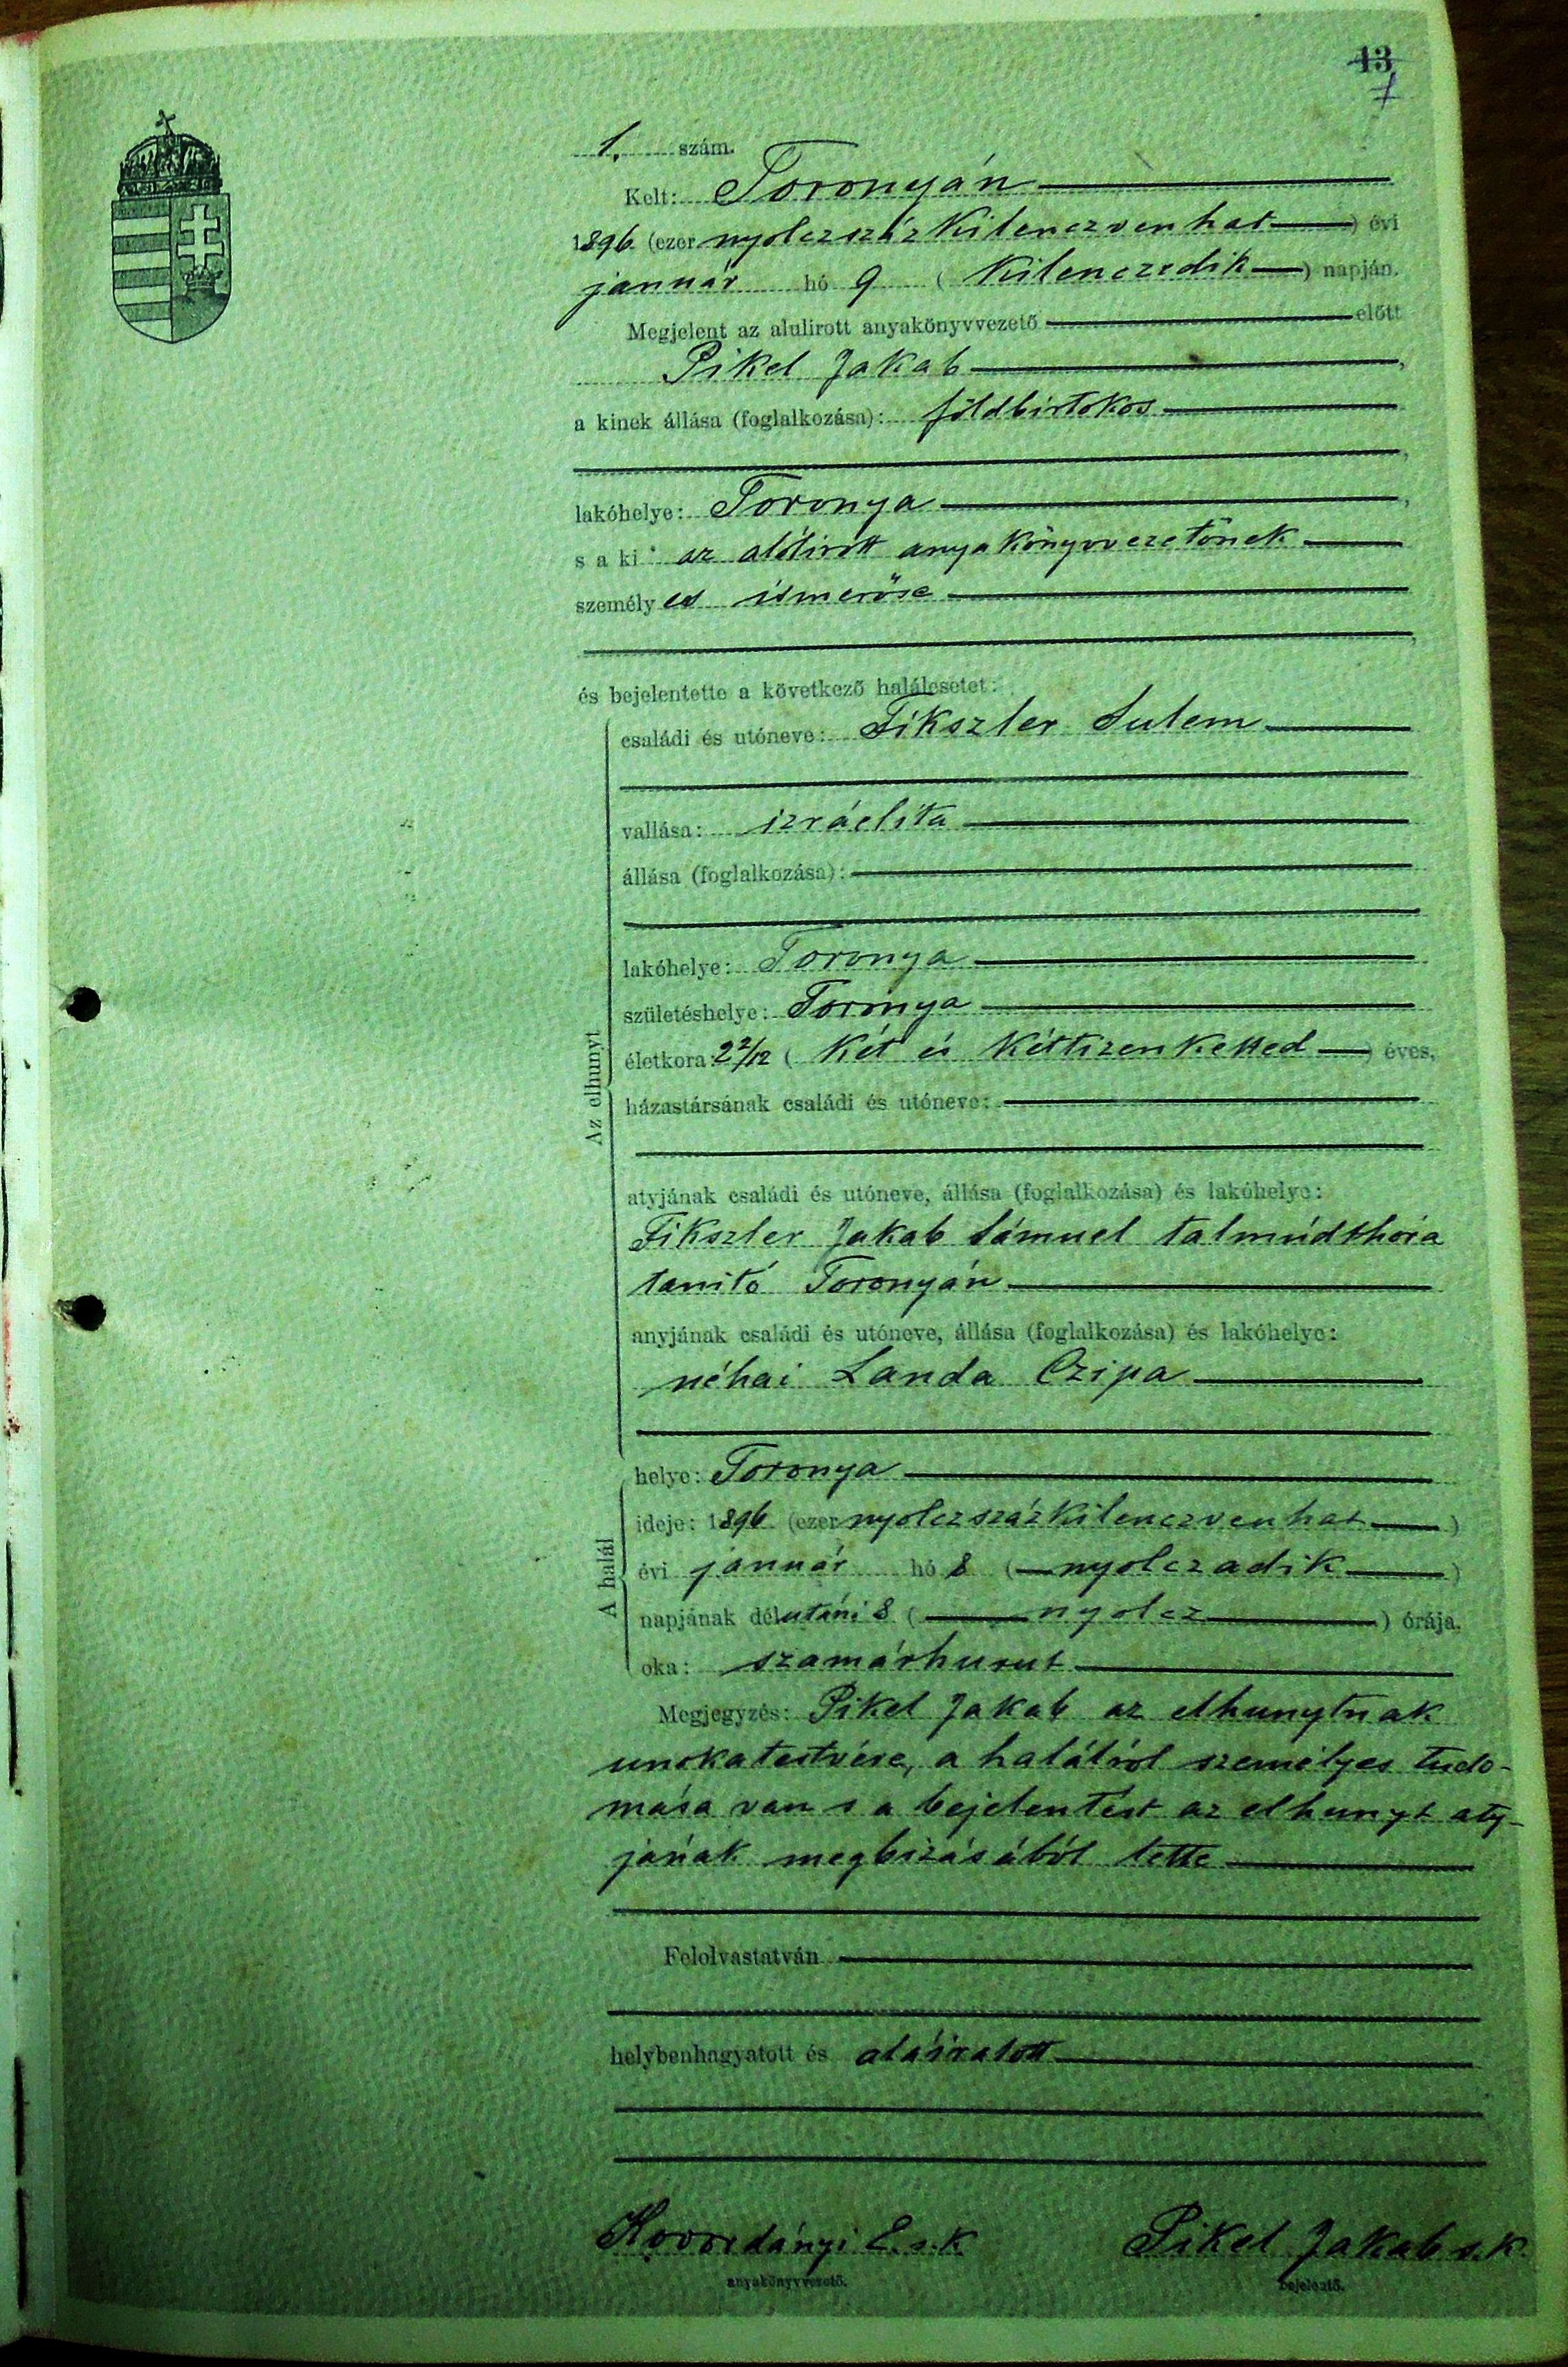 13
7
1. szám.
Kelt: Toronyán
1896 (ezer nyolczszáz kilenczven hat) évi
január hó 9 (kilenczedik) napján.
Megjelent az alulirott anyakönyvvezető előtt
Pikel Jakab,
a kinek állása (foglalkozása): földbirtokos
lakóhelye: Toronya,
s a ki az alólirott anyakönyvvezetőnek
személyes ismerőse
és bejelentette a következő halálesetet:
Az elhunyt
családi és utóneve: Fikszler Sulem
vallása: izráelita
állása (foglalkozása):
lakóhelye: Toronya
születéshelye: Toronya
életkora: 2 2/12 (két és kéttizenketted) éves,
házastársának családi és utóneve:
atyjának családi és utóneve, állása (foglalkozása) és lakóhelye:
Fikszler Jakab Sámuel talmúdthóra
tanitó Toronyán
anyjának családi és utóneve, állása (foglalkozása) és lakóhelye:
néhai Landa Czipa
A halál
helye: Toronya
ideje: 1896 (ezer nyolczszáz kilenczven hat)
évi január hó 8 (nyolczadik)
napjának délutáni 8 (nyolcz) órája.
oka: szamárhurut
Megjegyzés: Pikel Jakab az elhunytnak
unokatestvére, a halálról személyes tudo-
mása van s a bejelentést az elhunyt aty-
jának megbizásából tette
Felolvastatván
helybenhagyatott és aláiratott
E. s.k. Pikel Jakab s.k.
anyakönyvvezető. bejelentő.